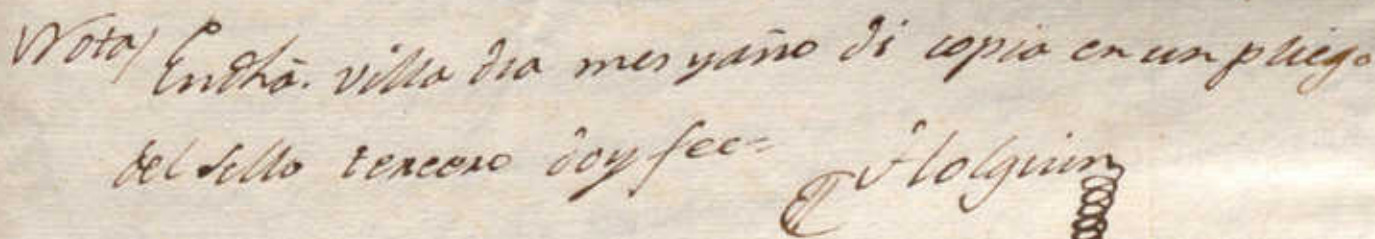 Nota/ En dha. villa dia mes y año di copia en un pliego
del sello tercero doy fee=
Holguin